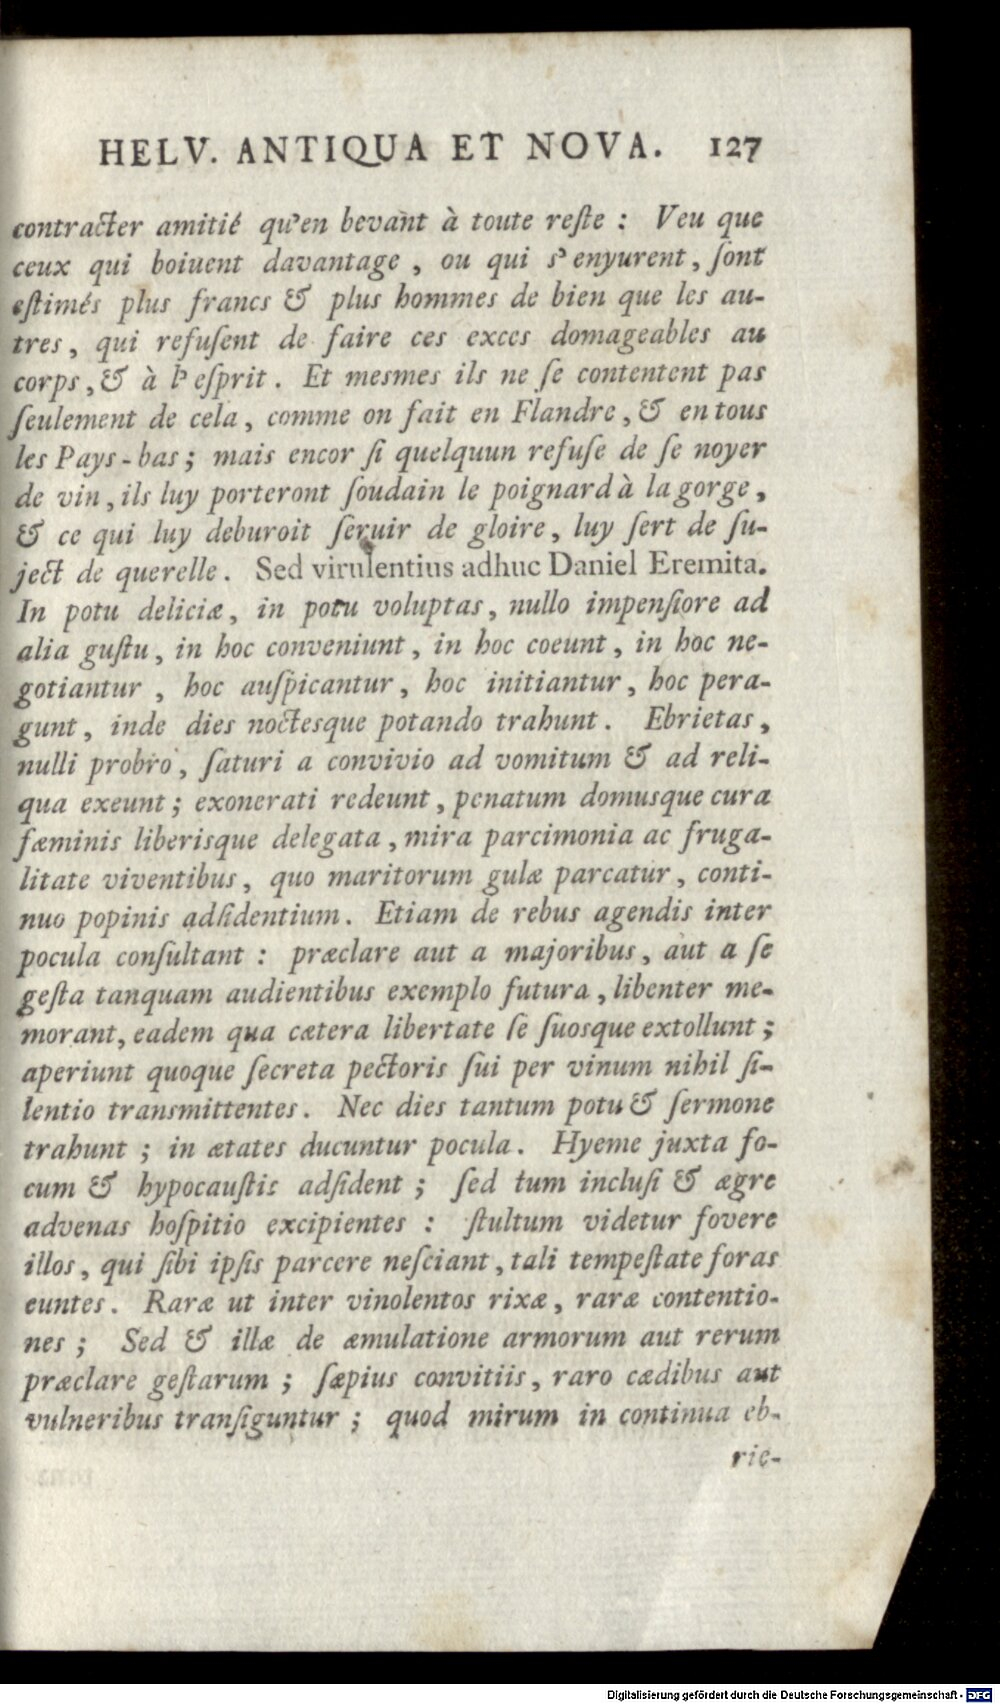 HELV. ANTIQUA ET NOVA. 127
contracter amitié qu'en bevant à toute reſte : Veu que
ceux qui boiuent davantage , ou qui s'enyurent, ſont
eſtimés plus francs & plus hommes de bien que les au-
tres, qui refuſent de faire ces exces domageables au
corps, & à l'eſprit. Et mesmes ils ne ſe contentent pas
ſeulement de cela, comme on fait en Flandre, & en tous
les Pays-bas; mais encor ſi quelquun refuſe de ſe noyer
de vin, ils luy porteront ſoudain le poignard à la gorge,
& ce qui luy deburoit ſeruir de gloire, luy ſert de ſu-
ject de querelle. Sed virulentius adhuc Daniel Eremita.
In potu deliciæ, in potu voluptas, nullo impenſiore ad
alia guſtu, in hoc conveniunt, in hoc coeunt, in hoc ne-
gotiantur , hoc auſpicantur, hoc initiantur, hoc pera-
gunt, inde dies noctesque potando trahunt. Ebrietas,
nulli probro, ſaturi a convivio ad vomitum & ad reli-
qua exeunt; exonerati redeunt, penatum domusque cura
fæminis liberisque delegata, mira parcimonia ac fruga-
litate viventibus, quo maritorum gulæ parcatur, conti-
nuo popinis adſidentium. Etiam de rebus agendis inter
pocula conſultant : præclare aut a majoribus, aut a ſe
geſta tanquam audientibus exemplo futura, libenter me-
morant, eadem qua cætera libertate ſe ſuosque extollunt;
aperiunt quoque ſecreta pectoris ſui per vinum nihil ſi-
lentio transmittentes. Nec dies tantum potu & ſermone
trahunt ; in ætates ducuntur pocula. Hyeme juxta fo-
cum & hypocauſtis adſident ; ſed tum incluſi & ægre
advenas hoſpitio excipientes : ſtultum videtur fovere
illos, qui ſibi ipſis parcere neſciant, tali tempeſtate foras
euntes. Raræ ut inter vinolentos rixæ, raræ contentio-
nes ; Sed & illæ de æmulatione armorum aut rerum
præclare geſtarum ; ſæpius convitiis, raro cædibus aut
vulneribus tranſiguntur ; quod mirum in continua eb-
rie-
Digitalisierung gefördert durch die Deutsche Forschungsgemeinschaft - DFG